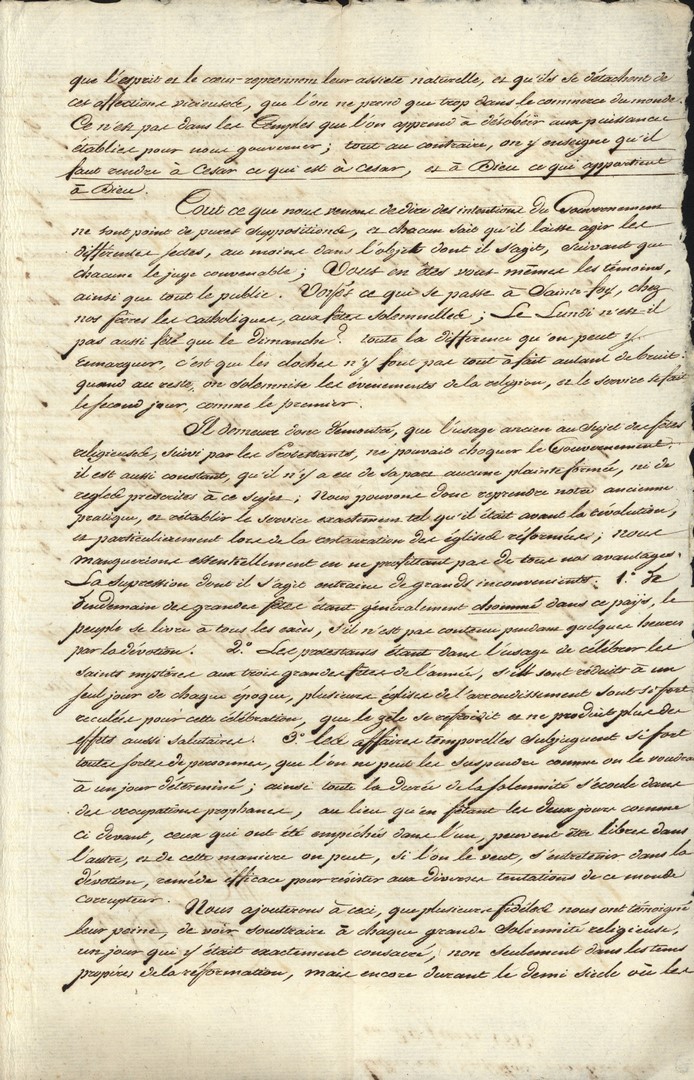 que l'esprit et le cœur reprennent leur assiete naturelle, et qu'ils se détachent de
ces affections vicieuses, que l'on ne prend que trop dans le commerce du monde.
Ce n'est pas dans les Temples que l'on apprend à désobéir aux puissances
établies pour nous gouverner ; tout au contraire, on y enseigne qu'il
faut rendre à Cesar ce qui est à Cesar, et à Dieu ce qui appartient
à Dieu.
Tout ce que nous venons de dire des intentions du Gouvernement
ne sont point de pures suppositions, et chacun sait qu'il laisse agir les
differentes sectes, au moins dans l'objet dont il s'agit, suivant que
chacune le juge convenable ; Vous en êtes vous mêmes les témoins,
ainsi que tout le public. Voyés ce qui se passe à Sainte-foy, chez
nos frères les catholiques, aux fêtes solemnelles ; Le Lundi n'est-il
pas aussi fêté que le dimanche ? toute la différence qu'on peut y
remarquer, c'est que les cloches n'y font pas tout à fait autant de bruit :
quand au reste, on solemnise les évenements de la religion, et le service se fait
le second jour, comme le premier.
Il demeure donc démontré, que l'usage ancien au sujet des fêtes
religieuses, suivi par les Protestants, ne pouvait choquer le Gouvernement
il est aussi constant, qu'il n'y a eu de sa part aucune plainte formée, ni de
regles prescrites à ce sujet ; Nous pouvons donc reprendre notre ancienne
pratique, et rétablir le service exactement tel qu'il était avant la révolution,
et particulierement lors de la restauration des églises réformées ; nous
manquerions essentiellement en ne profittant pas de tous nos avantages.
La supression dont il s'agit entraine de grands inconvenients. 1.° Le
lendemain des grandes fêtes étant généralement chommé dans ce païs, le
peuple se livre à tous les excès, s'il n'est pas contenu pendant quelques heures
par la dévotion. 2.° Les protestants étant dans l'usage de célébrer les
saints mystères aux trois grandes fêtes de l'année, s'ils sont réduits à un
seul jour de chaque époque, plusieurs églises de l'arrondissement sont si fort
reculées pour cette célébration, que le zèle se refroidit et ne produit plus des
effets aussi salutaires. 3.° les affaires temporelles subjuguent si fort
toutes sortes de personnes, que l'on ne peut les suspendre comme on le voudrait
à un jour déterminé ; ainsi toute la durée de la solemnité s'écoule dans
des occupations prophanes, au lieu qu'en fêtant les deux jours comme
ci devant, ceux qui ont été empêchés dans l'un, peuvent être libres dans
l'autre, et de cette manière on peut, si l'on le veut, s'entretenir dans la
dévotion, remède efficace pour résister aux diverses tentations de ce monde
corrupteur.
Nous ajouterons à ceci, que plusieurs fidéles nous ont témoigné
leur peine, de voir soustraire à chaque grande solemnité religieuse,
un jour qui y était exactement consacré, non seulement dans les tems
propères de la réformation, mais encore durant le demi siècle où les